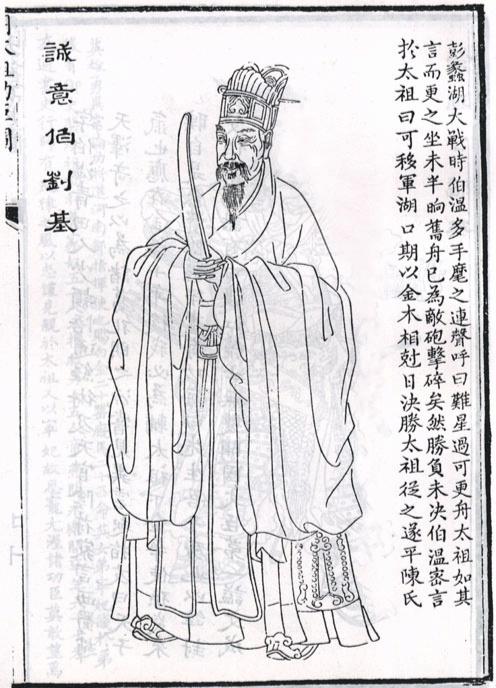 彭蠡湖大戰時伯溫多手麾之連聲呼曰難星過可更舟太祖如其
言而更之坐未半晌舊舟已為敵砲擊碎矣然勝負未决伯溫密言
扵太祖曰可移軍湖口期以金木相尅日决勝太祖從之遂平陳氏
誠意伯劉基